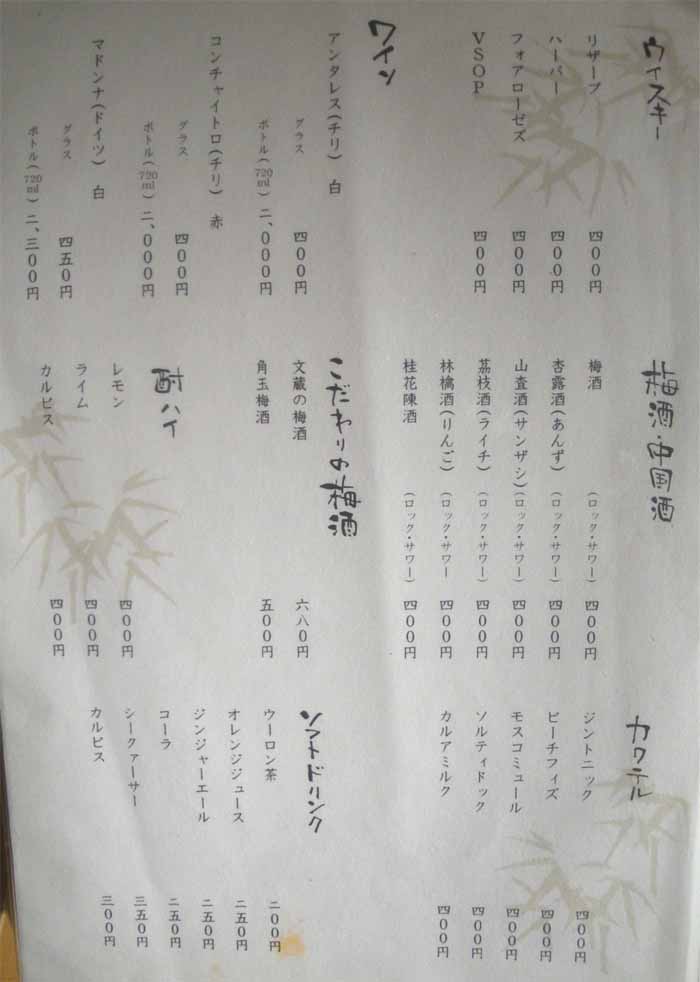 ウィスキー
リザーブ 四〇〇円
ハーパー 四〇〇円
フォアローゼズ 四〇〇円
VSOP 四〇〇円
ワイン
アンタレス(チリ) 白
グラス 四〇〇円
ボトル(720ml) 二、〇〇〇円
コンチャイトロ(チリ) 赤
グラス 四〇〇円
ボトル(720ml) 二、〇〇〇円
マドンナ(ドイツ) 白
グラス 四五〇円
ボトル(720ml) 二、三〇〇円
梅酒・中国酒
梅酒 (ロック・サワー) 四〇〇円
杏露酒(あんず) (ロック・サワー) 四〇〇円
山査酒(サンザシ) (ロック・サワー) 四〇〇円
茘枝酒(ライチ) (ロック・サワー) 四〇〇円
林檎酒(りんご) (ロック・サワー 四〇〇円
桂花陳酒 (ロック・サワー) 四〇〇円
こだわりの梅酒
文蔵の梅酒 六八〇円
角玉梅酒 五〇〇円
酎ハイ
レモン 四〇〇円
ライム 四〇〇円
カルピス 四〇〇円
カクテル
ジントニック 四〇〇円
ピーチフィズ 四〇〇円
モスコミュール 四〇〇円
ソルティドック 四〇〇円
カルアミルク 四〇〇円
ソフトドリンク
ウーロン茶 二〇〇円
オレンジジュース 二五〇円
ジンジャーエール 二五〇円
コーラ 二五〇円
シークァーサー 三五〇円
カルピス 三〇〇円